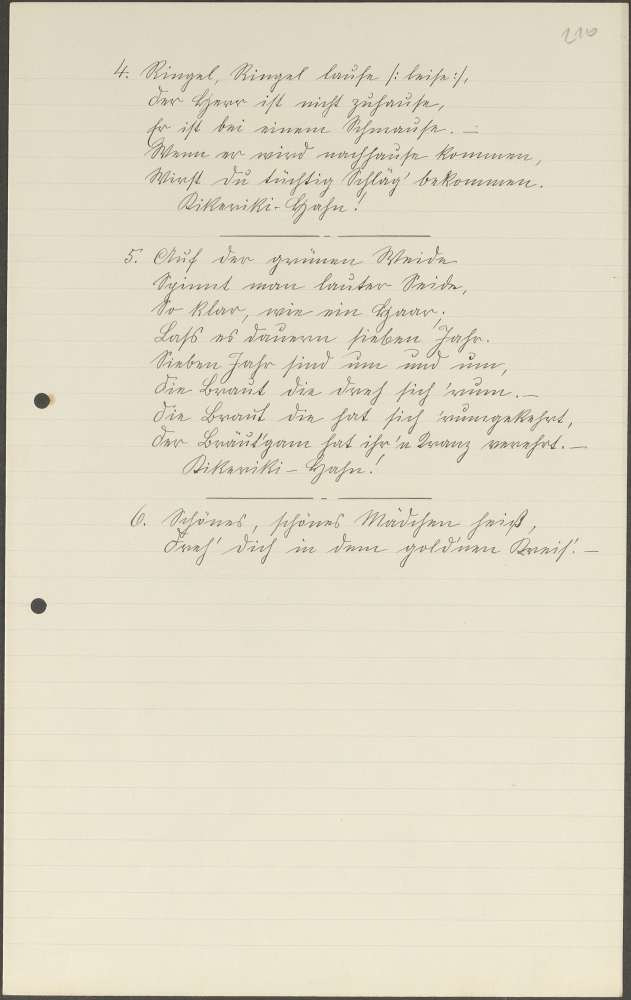 210
4. Ringel, Ringel laufe /: leise :/,
Der Herr ist nicht zuhause,
Er ist bei einem Schmause. –
Wenn er wird nachhause kommen,
Wirst du tüchtig Schläg' bekommen.
Kikeriki-Hahn!
5. Auf der grünen Weide
Spinnt man lauter Seide,
So klar, wie ein Haar;
Lass es dauern sieben Jahr.
Sieben Jahr sind um und um,
Die Braut die dreh sich 'rum. –
Die Braut die hat sich 'rumgekehrt,
Der Bräut'gam hat ihr 'n Kranz verehrt. –
Kikeriki – Hahn!
6. Schönes, schönes Mädchen heiß,
Dreh' dich in dem gold'nen Kreis'. –